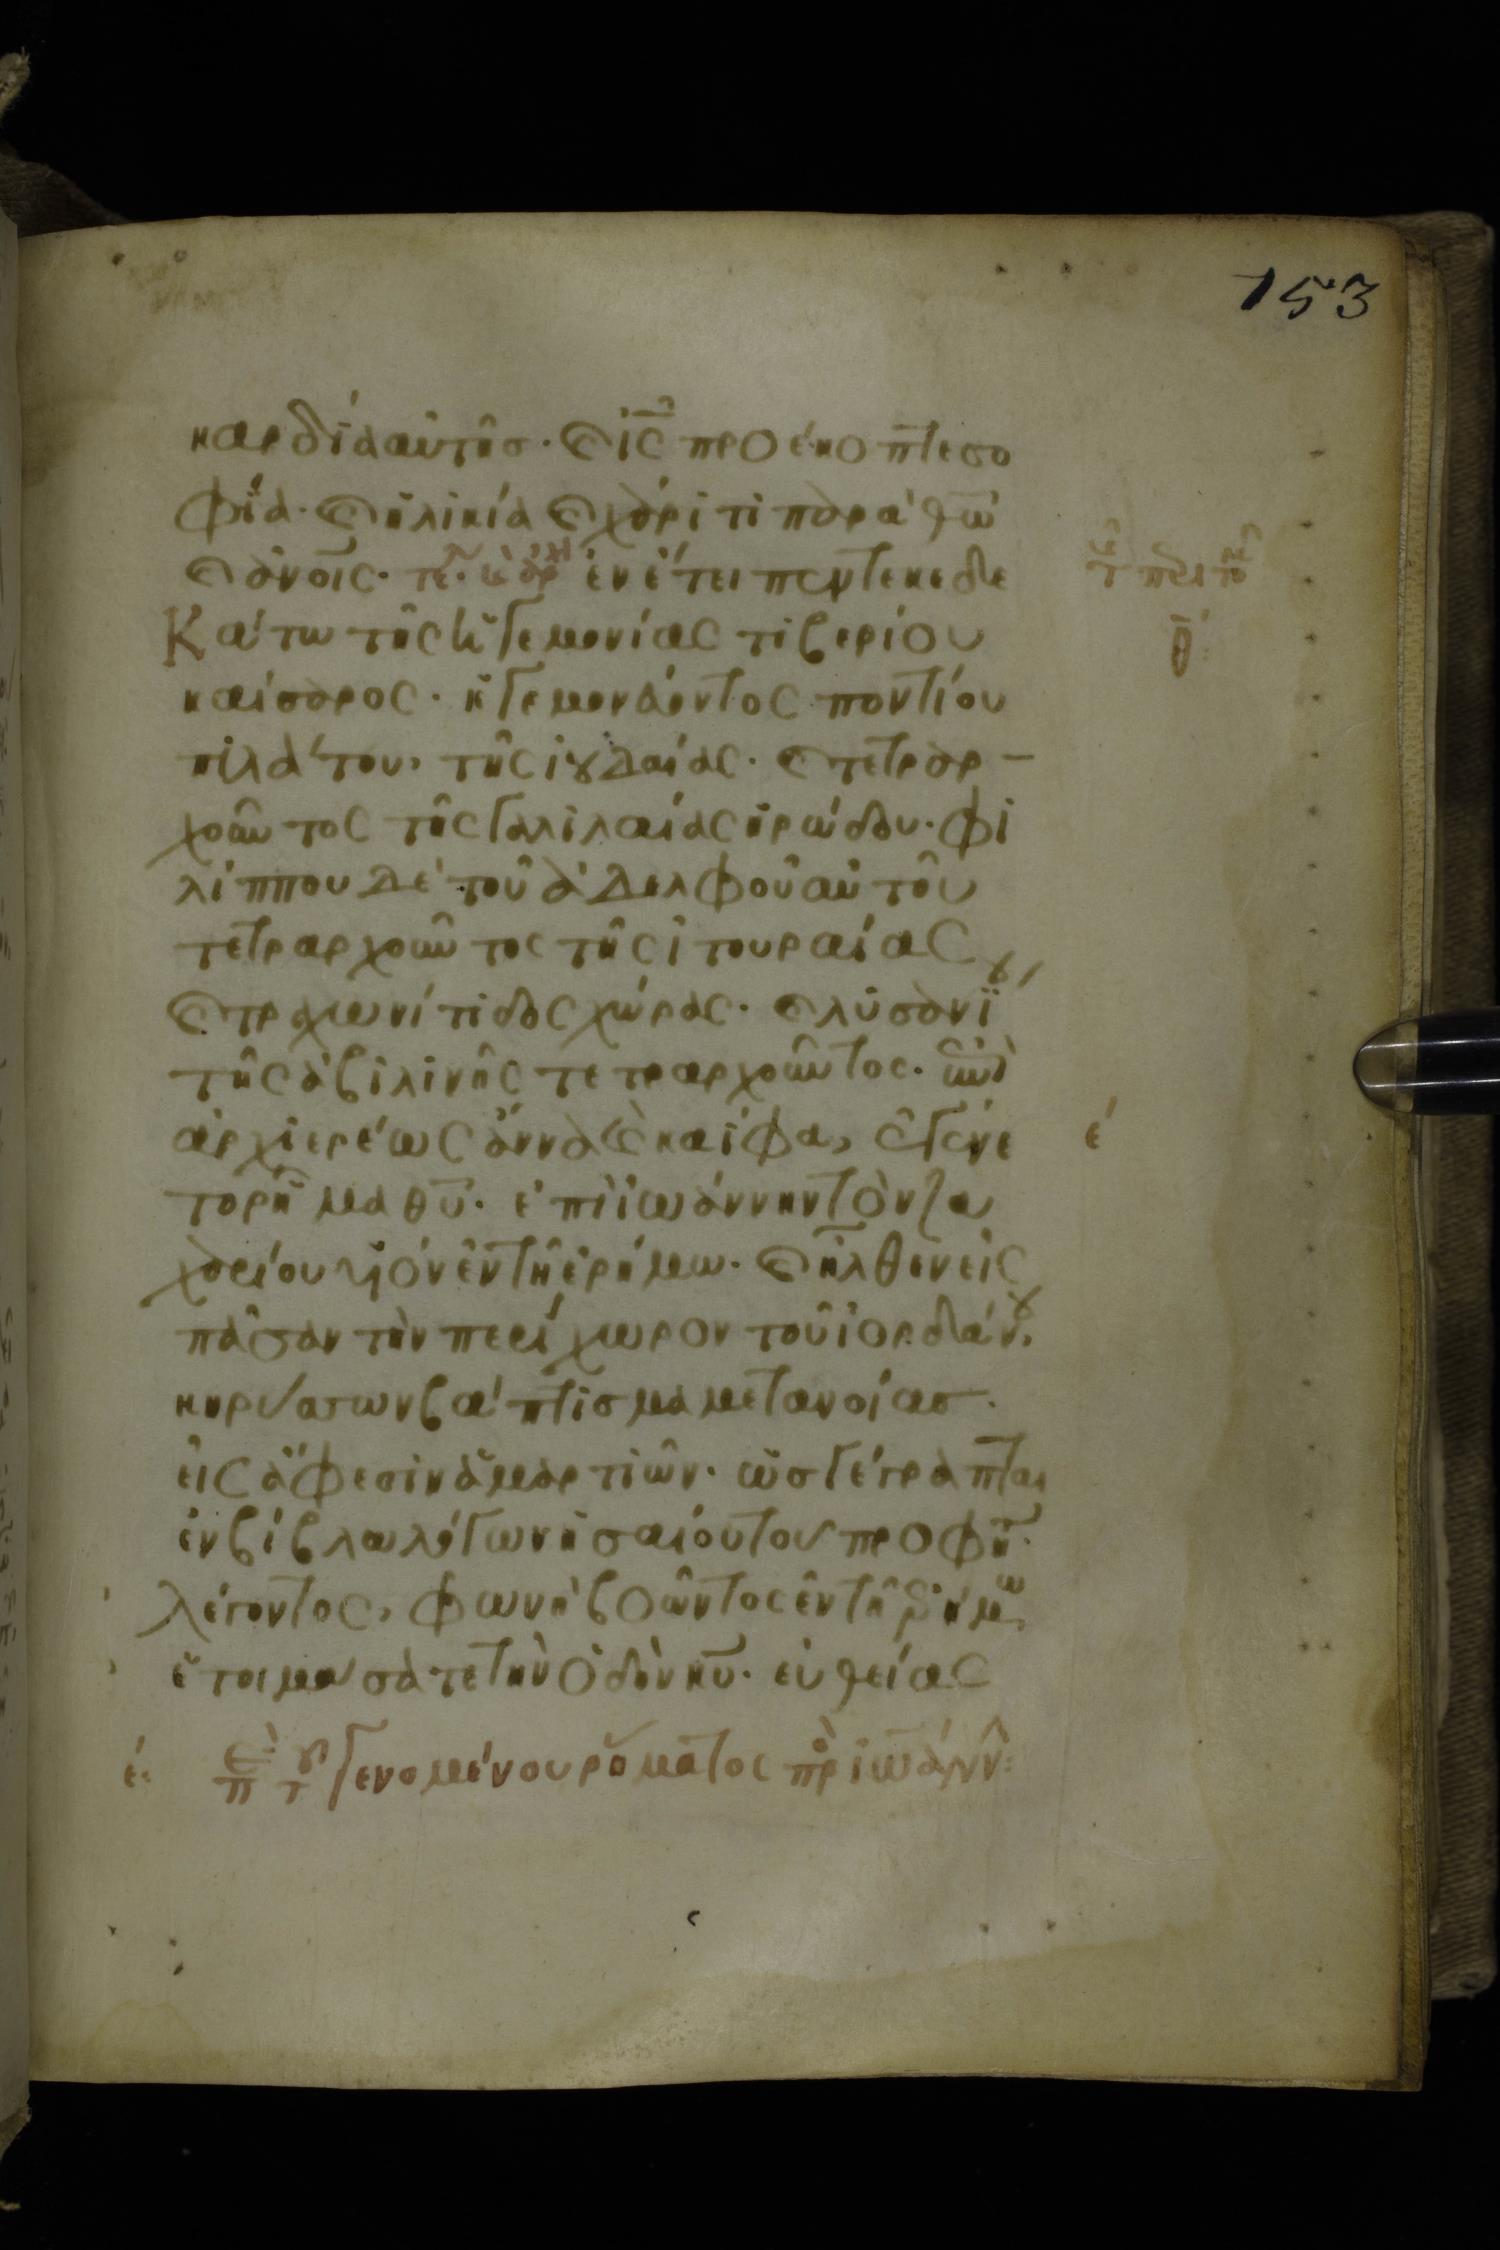 153
καρδία αὐτῆσ· ϗ ἰς̅ προέκοπτε σο
φΐα· ϗ ἡλικία ϗ χάριτι παρὰ θω̅
ϗ ἀνοῖς· τε̅· ϗ ἀρχὴ ἐν ἔτει πεντεκεδε
Κάτω τῆς ἡγεμονίας τιβερίου
καίσαρος· ἡγεμονεύοντος ποντίου
πιλάτου, τῆς ἰουδαίας· ϗ τετραρ –
χοῦντος τῆς γαλιλαίας ἡρώδου· φι
λίππου δὲ τοῦ ἀδελφοῦ αὐτοῦ
τετραρχοῦντος τῆς ἰτουραίας
ϗ τραχωνίτιδος χώρας· ϗ λυσανΐου
τῆς ἀβιλινῆς τετραρχοῦντος· ἐπὶ
ἀρχιερέως ἄννα ϗ καϊφα, ἐγένε
ε´
το ρῆμα θυ̅· ἐπὶ ἰωάννην τὸν ζα
χαρίου υἱὸν ἐν τῆ ἐρήμω· ϗ ἦλθεν εἰς
πᾶσαν τὴν περίχωρον τοῦ ἰορδάνου,
κηρύσσων βάπτισμα μετανοίασ·
εἰς ἄφεσιν ἁμαρτιῶν· ὡς γέγραπται
ἐν βίβλω λόγων ἡσαίου τοῦ προφη·
λέγοντος, φωνὴ βοῶντος ἐν τῆ ἐρήμω,
ἑτοιμάσατε τὴν ὁδὸν κυ̅· εὐθείας
ε´· γενομένου ρήματος πρὸ ἰωάνν: